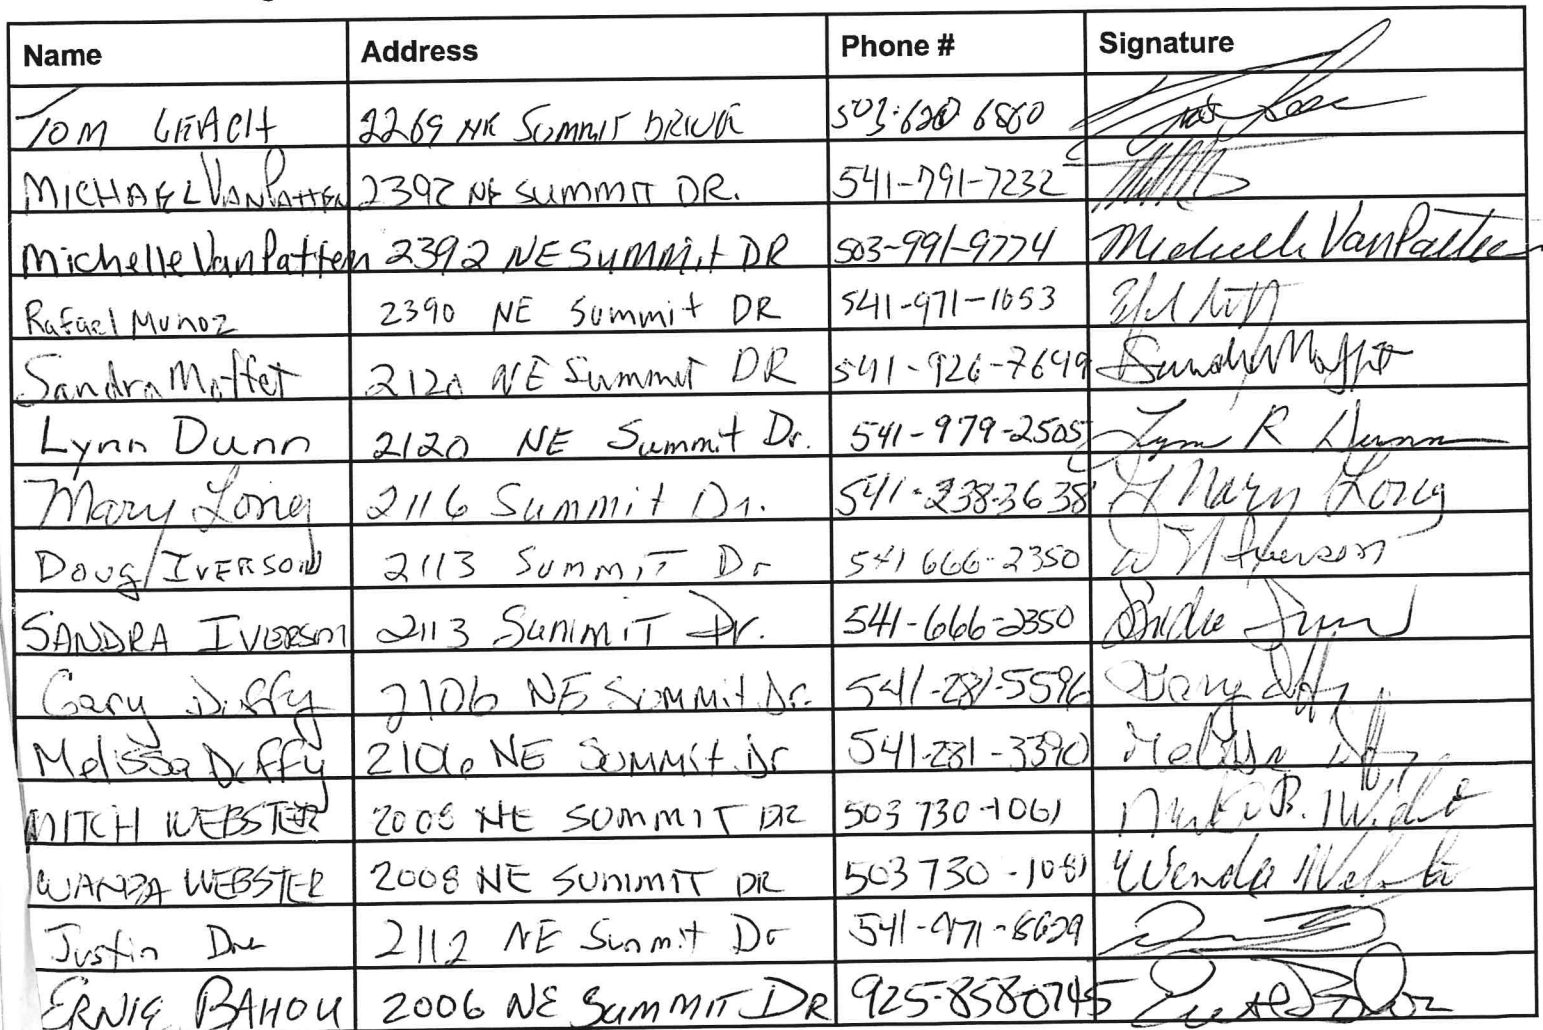 Name Address Phone # Signature
TOM LEACH 2269 NE SUMMIT DRIVE 503-620 6860
MICHAEL VANPATTEN 2392 NE SUMMIT DR. 541-791-7232
Michelle VanPatten 2392 NE Summit DR 503-991-9774 Michelle VanPatten
Rafael Munoz 2390 NE Summit DR 541-971-1053
Sandra Moffet 2120 NE Summit DR 541-926-7649 Sandra Moffet
Lynn Dunn 2120 NE Summit Dr. 541-979-2505 Lynn R Dunn
Mary Long 2116 Summit Dr. 541-238-3638 Mary Long
DOUG IVERSON 2113 SUMMIT Dr 541 666-2350 Iverson
SANDRA IVERSON 2113 SUMMIT Dr. 541-666-2350
Gary Duffy 2106 NE Summit Dr. 541-281-5596 Gary
Melissa Duffy 2106 NE Summit Dr 541-281-3390 Melissa
MITCH WEBSTER 2008 NE SUMMIT DR 503 730-1061
WANDA WEBSTER 2008 NE SUMMIT DR 503 730-1081 Wanda Webster
Justin 2112 NE Summit Dr 541-971-8629
ERNIE BAHOU 2006 NE SUMMIT DR 925-8580745